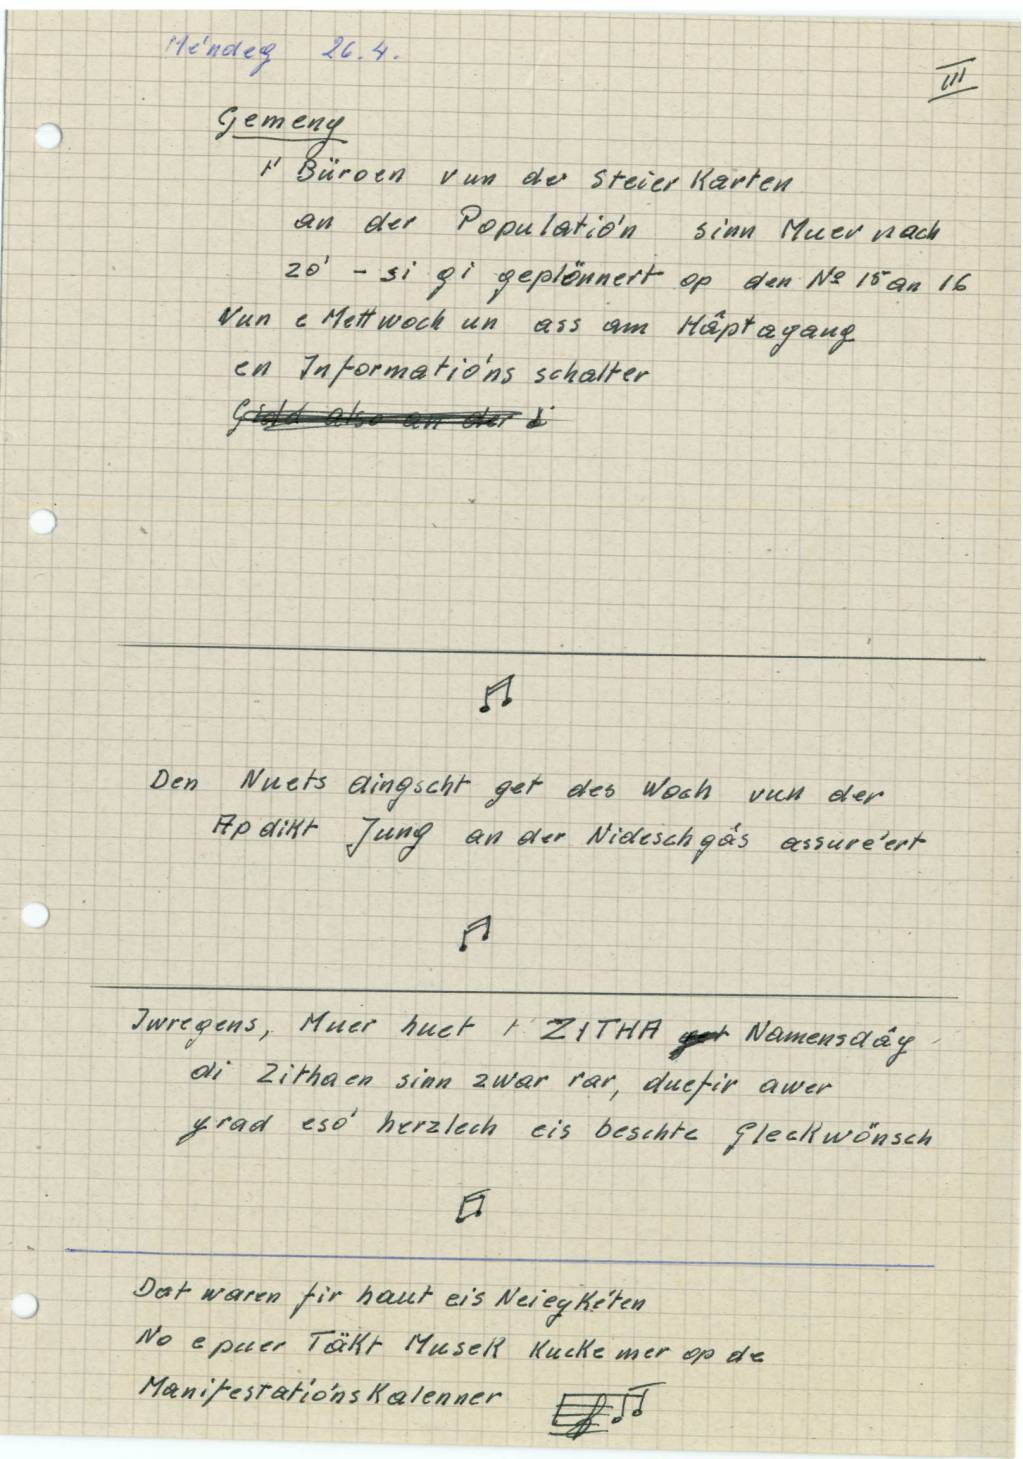 Méndeg 26.4.
III
Gemeng
t' Büroen vun de Steier Karten
an der Populatió'n sinn Muer nach
zó' - si gi geplönnert op den Nº 15 an 16
Vun e Mettwoch un ass am Hâptagang
en Informatió'nsschalter
Gidd also an der
Den Nuets dingscht get dés Woch vun der
Apdikt Jung an der Nideschgâs assuré'ert
Iwregens, Muer huet t' ZITHA get Namensdâg
di Zithaen sinn zwar rar, duefir awer
grad esó' herzlech eis beschte Gleckwönsch
Dat waren fir haut eis Neiegkéten
No e puer Täkt Musek kucke mer op de
Manifestatió'nskalenner